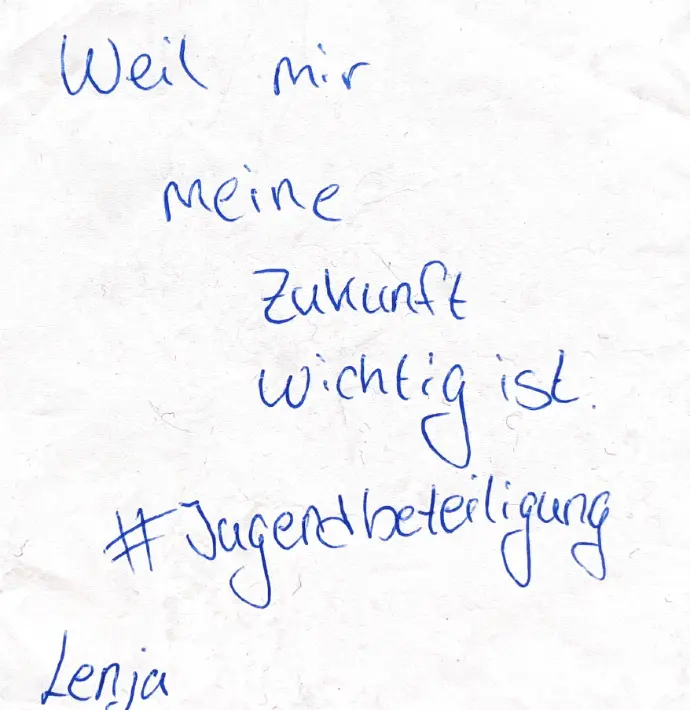 Weil mir
meine
Zukunft
wichtig ist.
#Jugendbeteiligung
Lenja